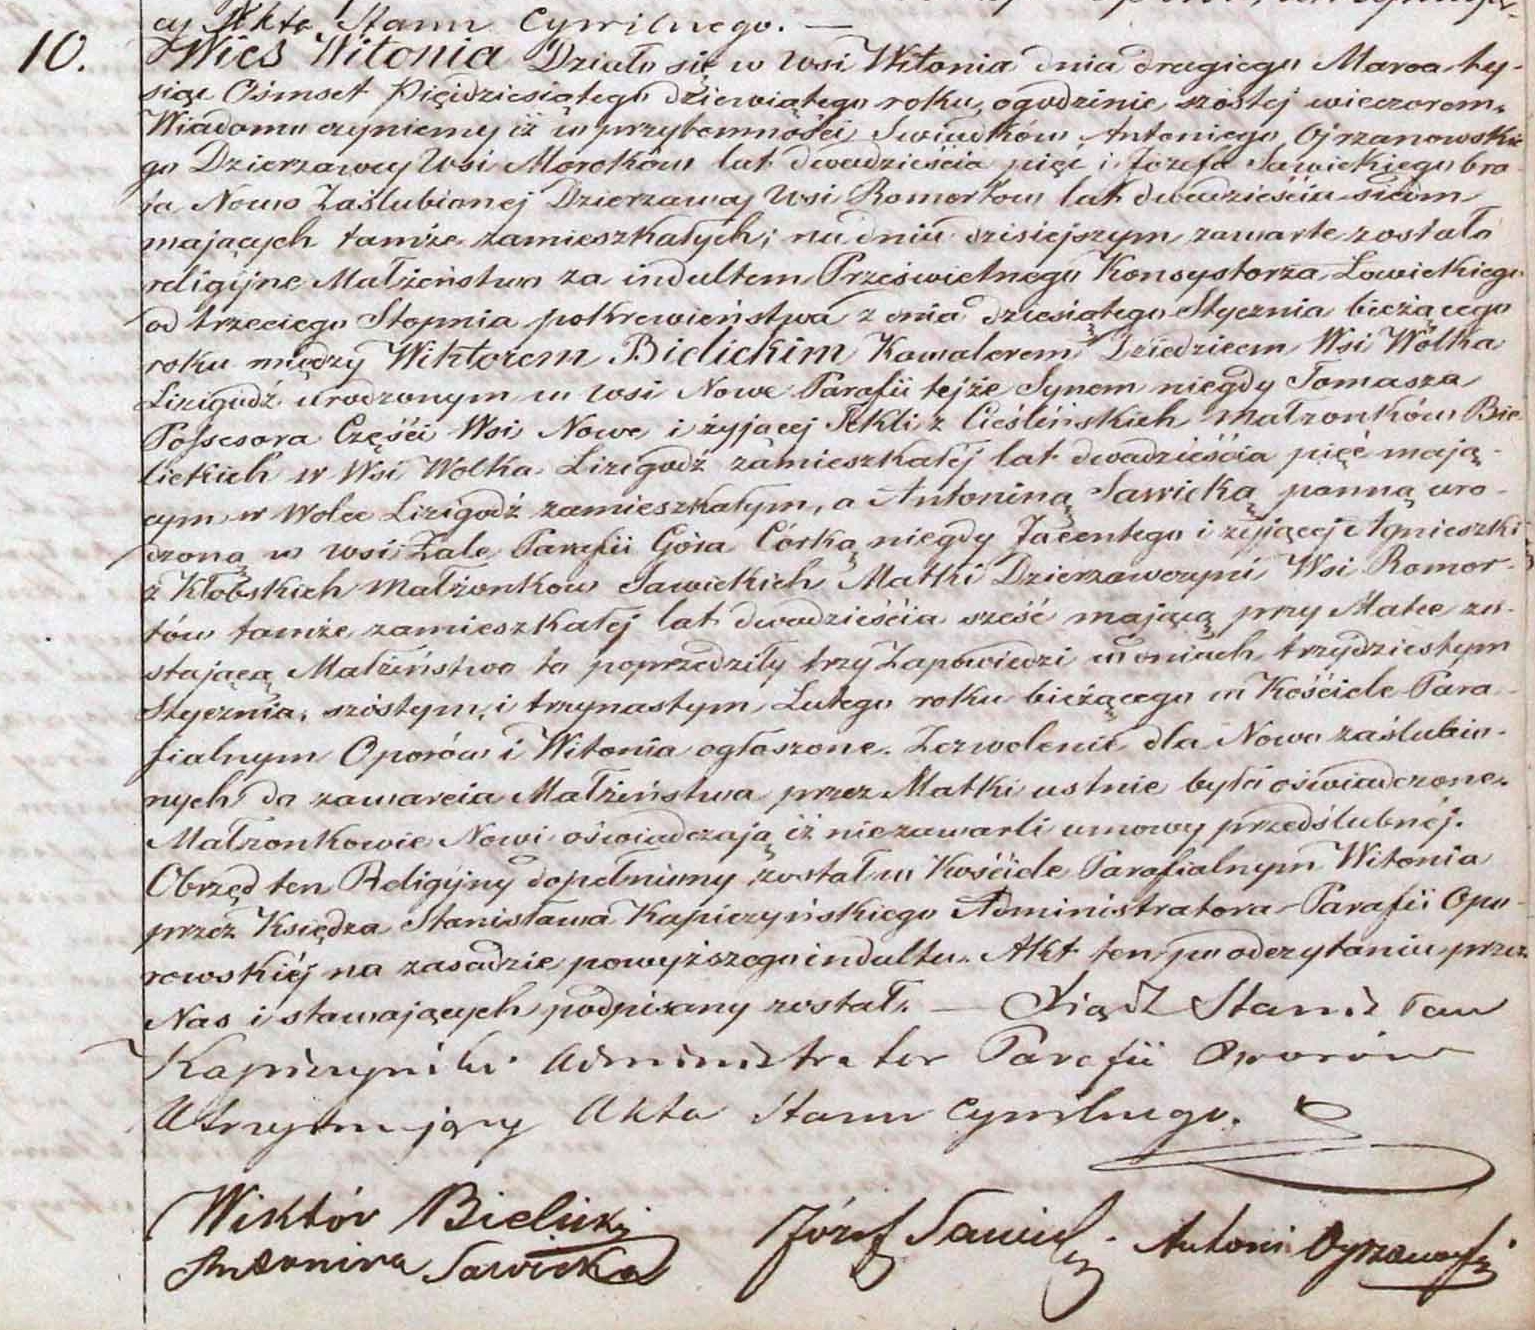 cy Akta Stanu Cywilnego. —
10. Wieś Witonia Działo się w Wsi Witonia dnia drugiego Marca ty-
siąc Ośmset Pięćdziesiątego dziewiątego roku, o godzinie szóstej wieczorem.
Wiadomo czyniemy iż w przytomności Świadków Antoniego Ojrzanowskie
go Dzierzawcy Wsi Mroczków lat dwadzieścia pięć i Józefa Sawickiego bra-
ta Nowo Zaślubionej Dzierzawcy Wsi Romartow lat dwadzieścia siedm
mających tamże zamieszkałych; na dniu dzisiejszym zawarte zostało
religijne Małżeństwo za indultem Prześwietnego Konsystorza Łowickiego
od trzeciego Stopnia pokrewieństwa z dnia dziesiątego Stycznia bieżącego
roku między Wiktorem Bielickim Kawalerem Dziedzicem Wsi Wólka
Lizigódź urodzonym w wsi Nowe Parafii tejże Synem niegdy Tomasza
Possesora Części Wsi Nowe i żyjącej Tekli z Cieślińskich Małżonków Bie-
lickich w Wsi Wolka Lizigódź zamieszkałej lat dwadzieścia pięć mają-
cym w Wolce Lizigódź zamieszkałym, a Antoniną Sawicką panną uro-
dzoną w wsi Żale Parafii Góra Córką niegdy Jacentego i żyjącej Agnieszki
z Kłobskich Małżonków Sawickich Matki Dzierzawczyni Wsi Romor-
tów tamże zamieszkałej lat dwadzieścia sześć mającą przy Matce zo-
stającą Małżeństwo to poprzedziły trzy Zapowiedzi w dniach trzydziestym
Stycznia, szóstym, i trzynastym Lutego roku bieżącego w Kościele Para-
fialnym Oporów i Witonia ogłoszone. Zezwolenie dla Nowo zaślubio-
nych do zawarcia Małżeństwa przez Matki ustnie było oświadczone.
Małżonkowie Nowi oświadczają iż niezawarli umowy przedślubnéj.
Obrzęd ten Religijny dopełniony został w Kościele Parafialnym Witonia
przez Księdza Stanisława Kapiczyńskiego Administratora Parafii Opo-
rowskiéj na zasadzie powyższego indultu. Akt ten po odczytaniu przez
Nas i stawających podpisany został. — Xiądz Stanisław
Kapiczyński Administrator Parafii Oporów
Utrzymujący Akta Stanu Cywilnego.
Wiktór Bielicki Józef Sawicki Antoni Oyrzanowski
Antonina Sawicka